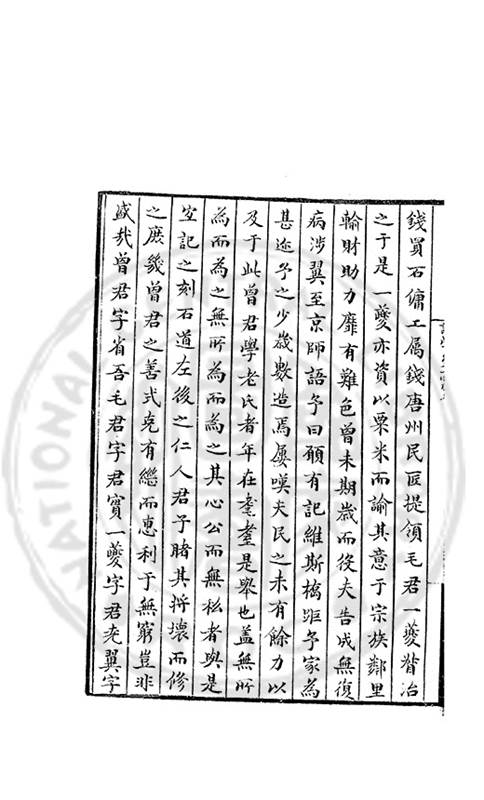 錢買石傭工属錢唐州民匠提領毛君一夔督治
之于是一夔亦資以粟米而諭其意于宗族鄰里
輸財助力靡有難色曾未期歲而役夫告成無復
病涉翼至京師語予曰願有記維斯橋距予家為
甚迩予之少歲數造焉屢嘆夫民之未有餘力以
及于此曾君學老氏者年在耄耋是舉也盖無所
為而為之無所為而為之其心公而無私者與是
宜記之刻石道左後之仁人君子睹其将壞而修
之庶幾曾君之善式克有繼而惠利于無窮豈非
盛哉曾君字省吾毛君字君實一夔字君克翼字
NATIONAL